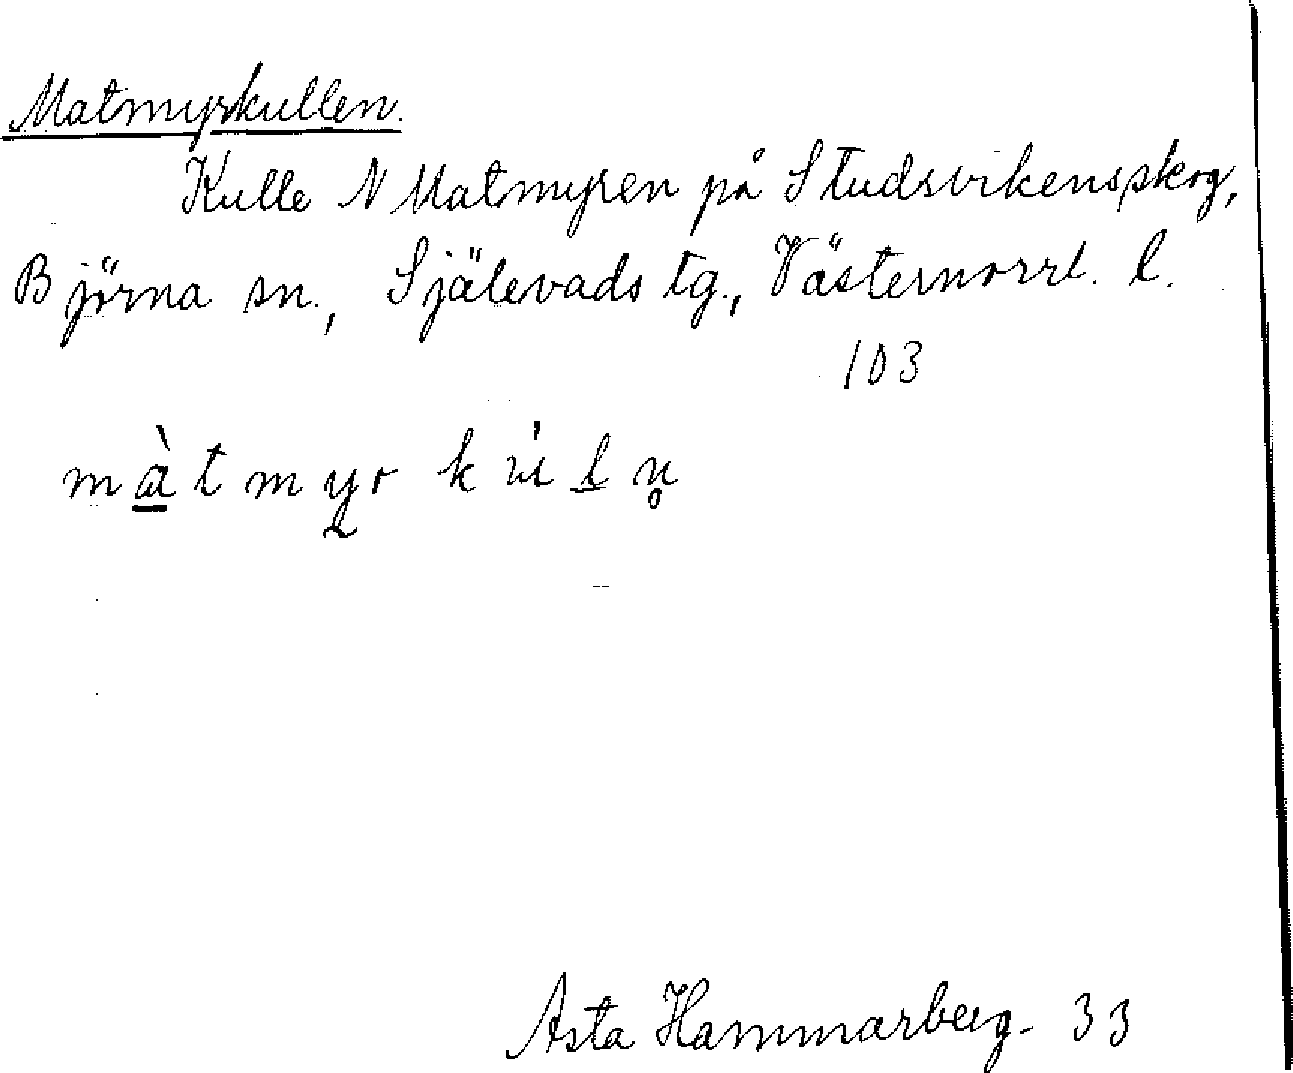 Matmyrkullen.
Kulle N Matmyren på Studsvikens skog,
Björna sn., Själevads tg., Västernorrl. l.
103
màtmyr kùln̥
Asta Hammarberg. 33